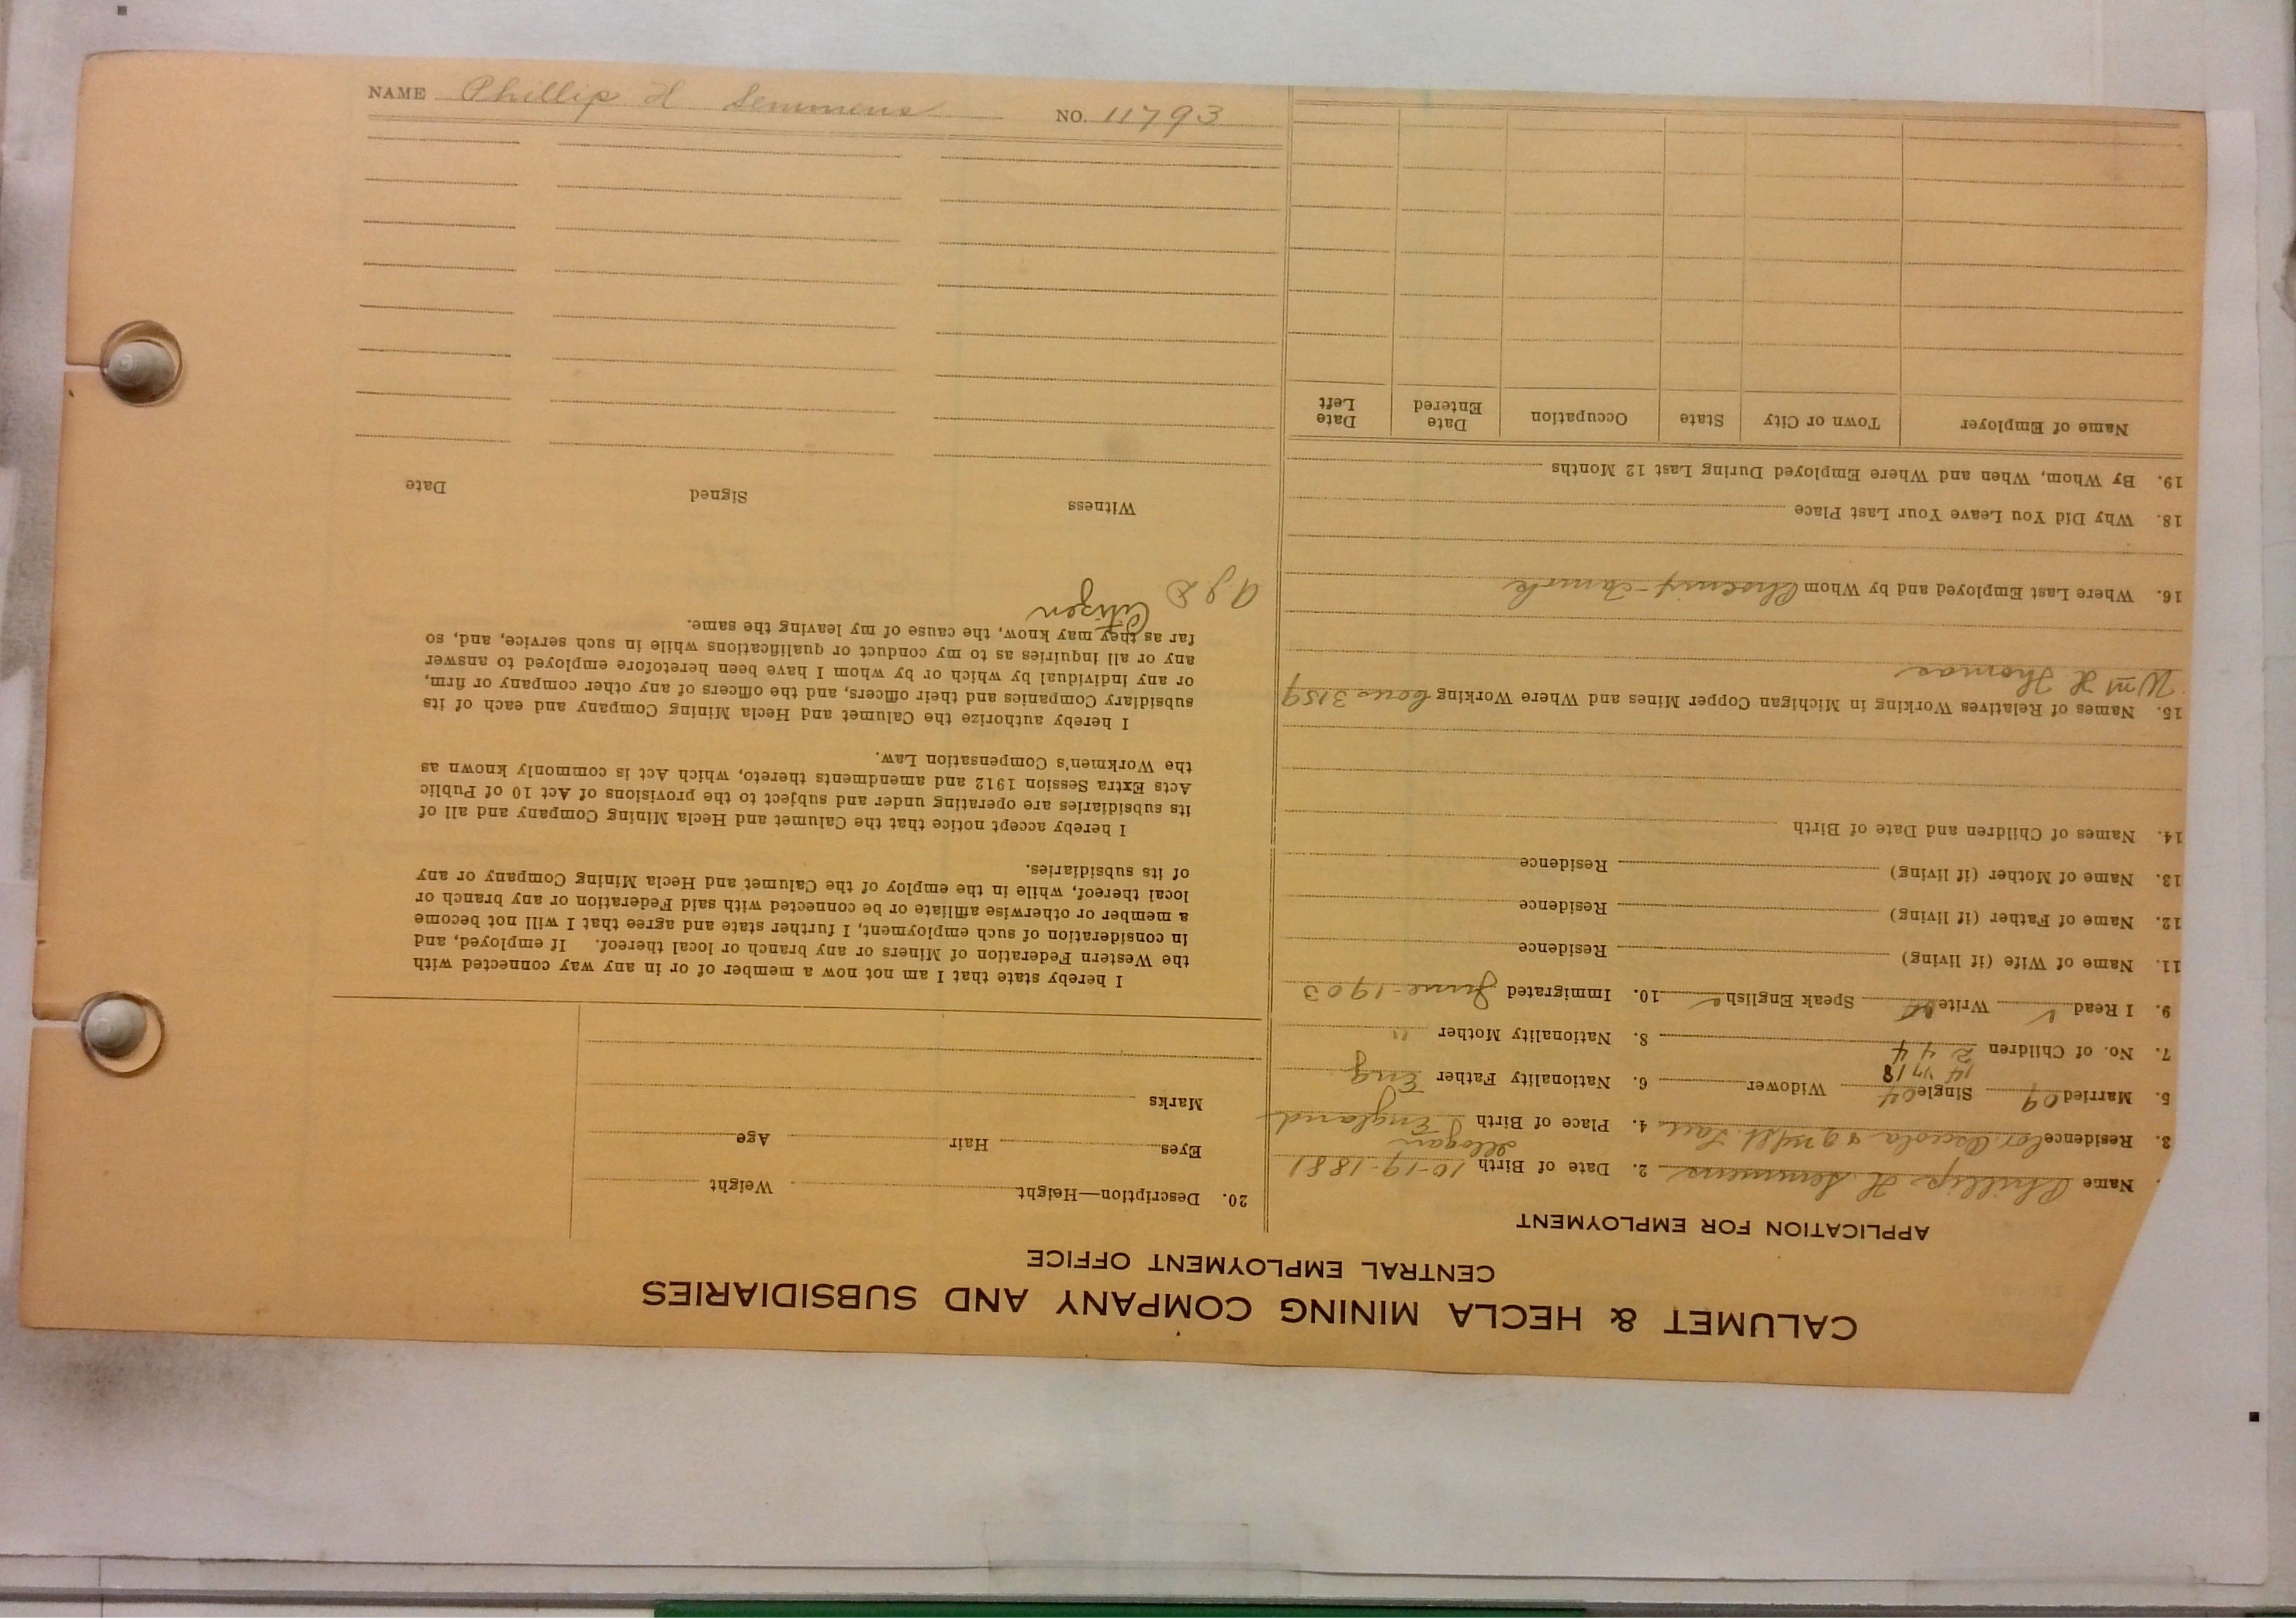 CALUMET & HECLA MINING COMPANY AND SUBSIDIARIES
CENTRAL EMPLOYMENT OFFICE
APPLICATION FOR EMPLOYMENT
Name Phillip H Semmens 2. Date of Birth 10-19-1881
3. Residence Cor Osceola & 9th St Laur. 4. Place of Birth Illogan England
5. Married 09 Single 04 Widower 6. Nationality Father Eng
14 17 18
7. No. of Children 2 4 4 8. Nationality Mother "
9. I Read ✓ Write Speak English ✓ 10. Immigrated June-1903
11. Name of Wife (if living) Residence
12. Name of Father (if living) Residence
13. Name of Mother (if living) Residence
14. Names of Children and Date of Birth
15. Names of Relatives Working in Michigan Copper Mines and Where Working 3159
Wm H Thomas
16. Where Last Employed and by Whom
18. Why Did You Leave Your Last Place
19. By Whom, When and Where Employed During Last 12 Months
Name of Employer Town or City State Occupation Date Entered Date Left
20. Description—Height Weight
Eyes Hair Age
Marks
I hereby state that I am not now a member of or in any way connected with
the Western Federation of Miners or any branch or local thereof. If employed, and
in consideration of such employment, I further state and agree that I will not become
a member or otherwise affiliate or be connected with said Federation or any branch or
local thereof, while in the employ of the Calumet and Hecla Mining Company or any
of its subsidiaries.
I hereby accept notice that the Calumet and Hecla Mining Company and all of
its subsidiaries are operating under and subject to the provisions of Act 10 of Public
Acts Extra Session 1912 and amendments thereto, which Act is commonly known as
the Workmen's Compensation Law.
I hereby authorize the Calumet and Hecla Mining Company and each of its
subsidiary Companies and their officers, and the officers of any other company or firm,
or any individual by which or by whom I have been heretofore employed to answer
any or all inquiries as to my conduct or qualifications while in such service, and, so
far as they may know, the cause of my leaving the same.
Citizen
Witness Signed Date
NAME Phillip H Semmens NO. 11793